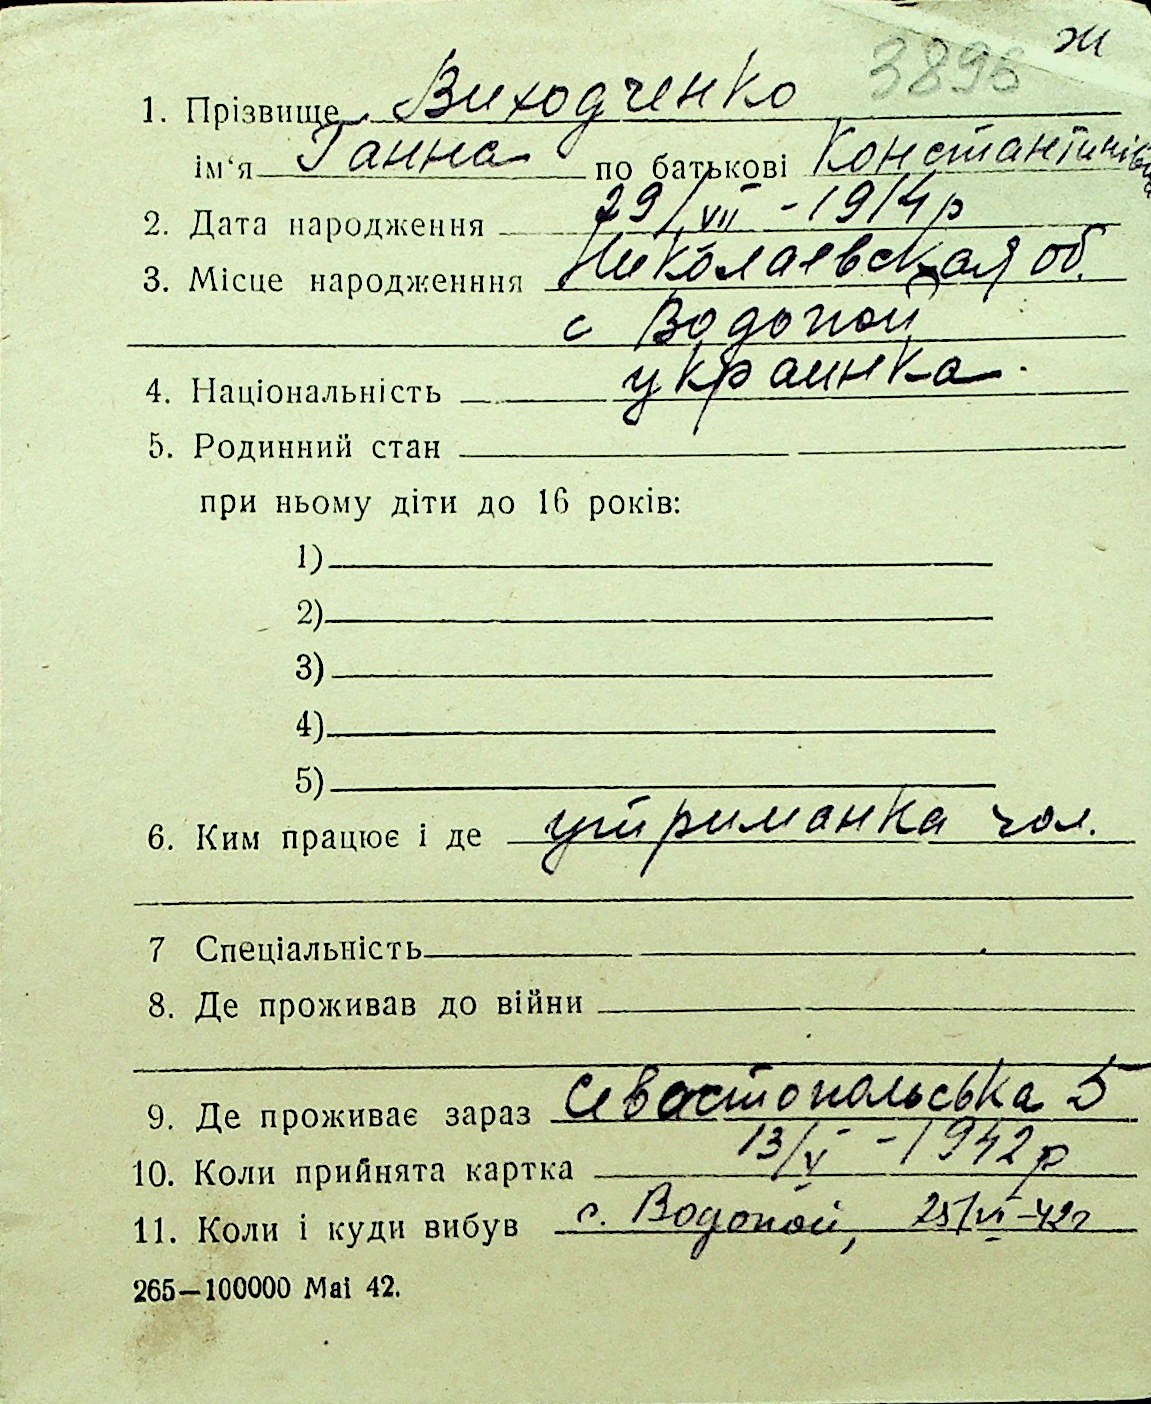 3896 Ж
1. Прізвище Виходченко
ім‘я Ганна по батькові Константинівна
2. Дата народження 29/VII - 1914 р
3. Місце народженння Николаевская об.
с Водопой
4. Національність украинка.
5. Родинний стан
при ньому діти до 16 років:
1)
2)
3)
4)
5)
6. Ким працює і де утриманка чол.
7 Спеціальність
8. Де проживав до війни
9. Де проживає зараз Севастопольська 5
10. Коли прийнята картка 13/V - 1942 р
11. Коли і куди вибув с. Водопой, 25/VI-42г
265—100000 Mai 42.